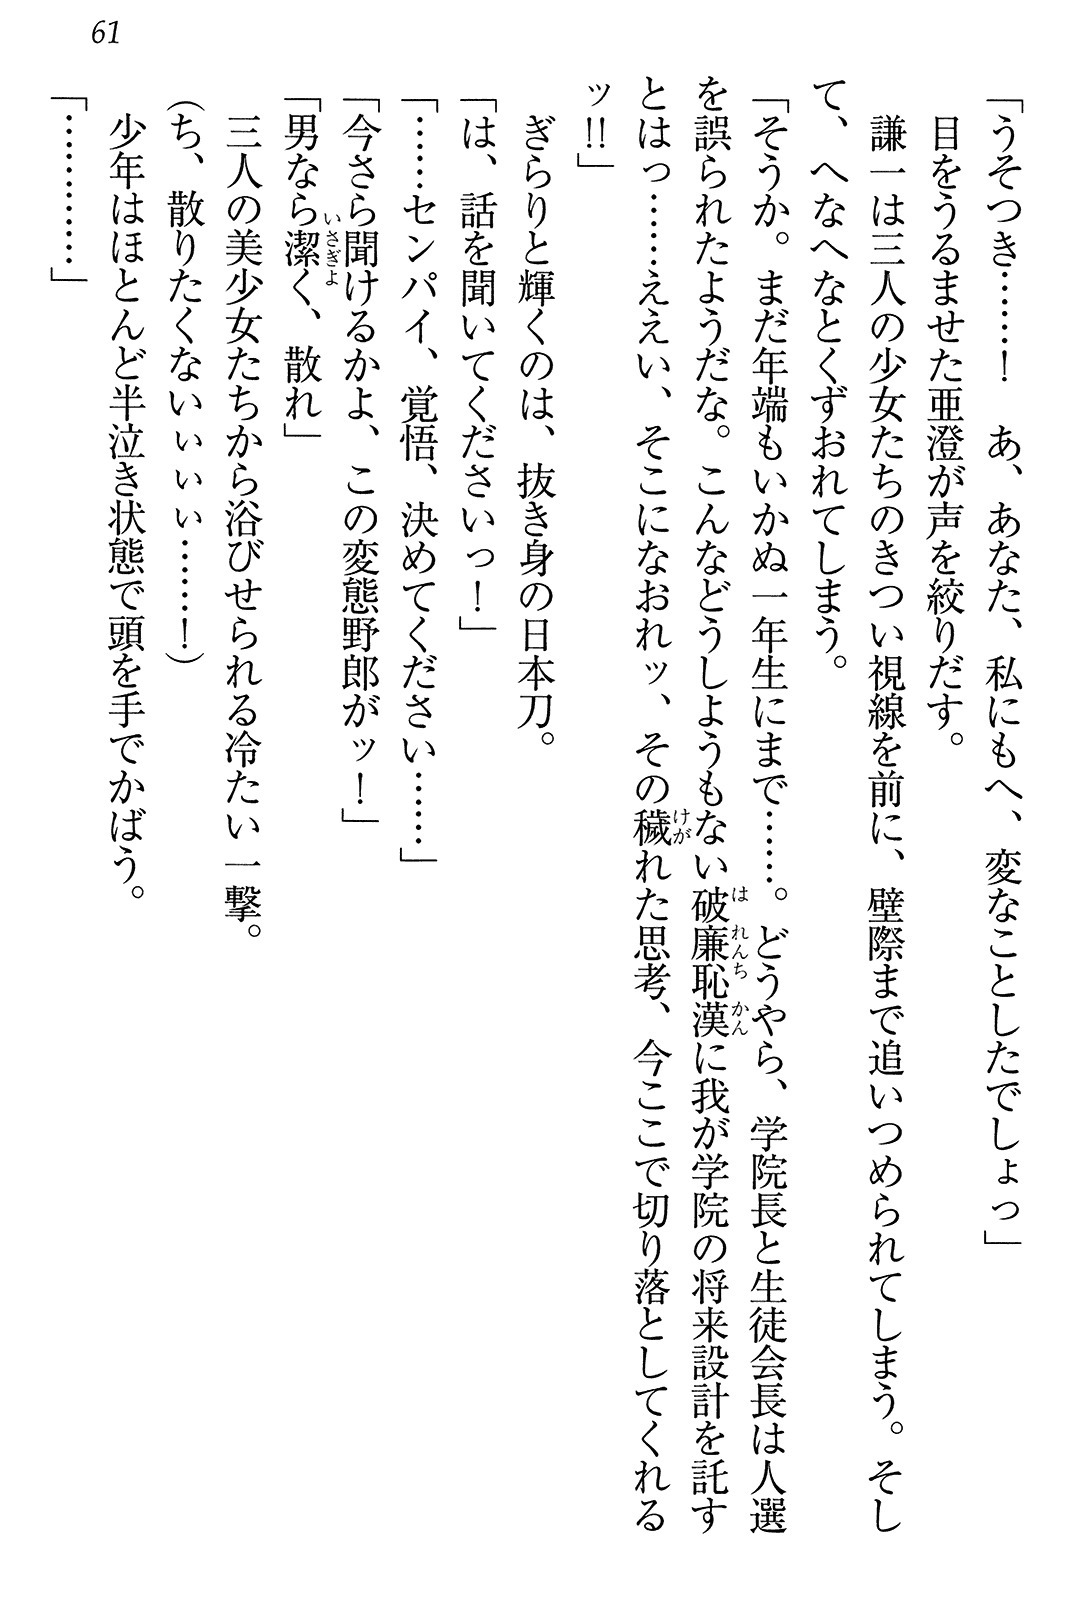 61
「うそつき………！　あ、あなた、私にもへ、変なことしたでしょっ」
目をうるませた亜澄が声を絞りだす。
謙一は三人の少女たちのきつい視線を前に、壁際まで追いつめられてしまう。そし
て、へなへなとくずおれてしまう。
「そうか。まだ年端もいかぬ一年生にまで……。どうやら、学院長と生徒会長は人選
を誤られたようだな。こんなどうしようもない破廉恥漢に我が学院の将来設計を託す
とはっ……ええい、そこになおれッ、その穢れた思考、今ここで切り落としてくれる
ッ!!」
ぎらりと輝くのは、抜き身の日本刀。
「は、話を聞いてくださいっ！」
「……センパイ、覚悟、決めてください……」
「今さら聞けるかよ、この変態野郎がッ！」
「男なら潔く、散れ」
三人の美少女たちから浴びせられる冷たい一撃。
（ち、散りたくないぃぃぃ………！）
少年はほとんど半泣き状態で頭を手でかばう。
「…………」